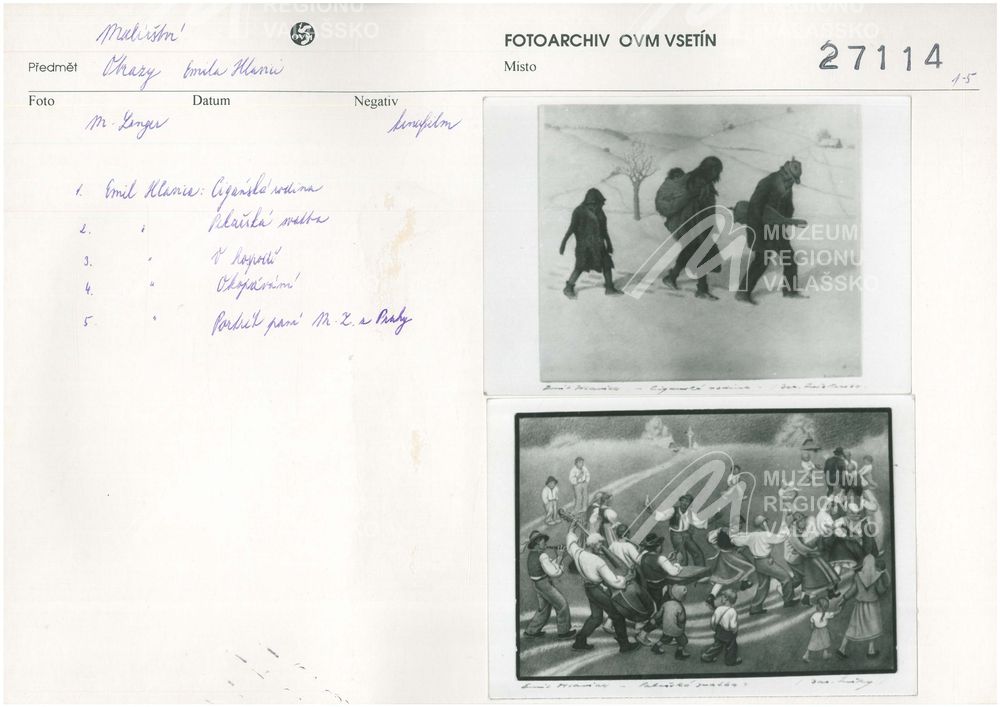 Malířství
OVM
FOTOARCHIV OVM VSETÍN
27114
Předmět Obrazy Emila Hlavici
Místo
1-5
Foto Datum Negativ
M. Langer kinofilm
1. Emil Hlavica: Cigánská rodina
2. " svatba
3. " V hospodě
4. " Okopávání
5. " Portrét paní M. Z. z Prahy
MUZEUM
REGIONU
VALAŠSKO
Emil Hlavica - Cigánská rodina -
MUZEUM
REGIONU
VALAŠSKO
Emil Hlavica - svatba -